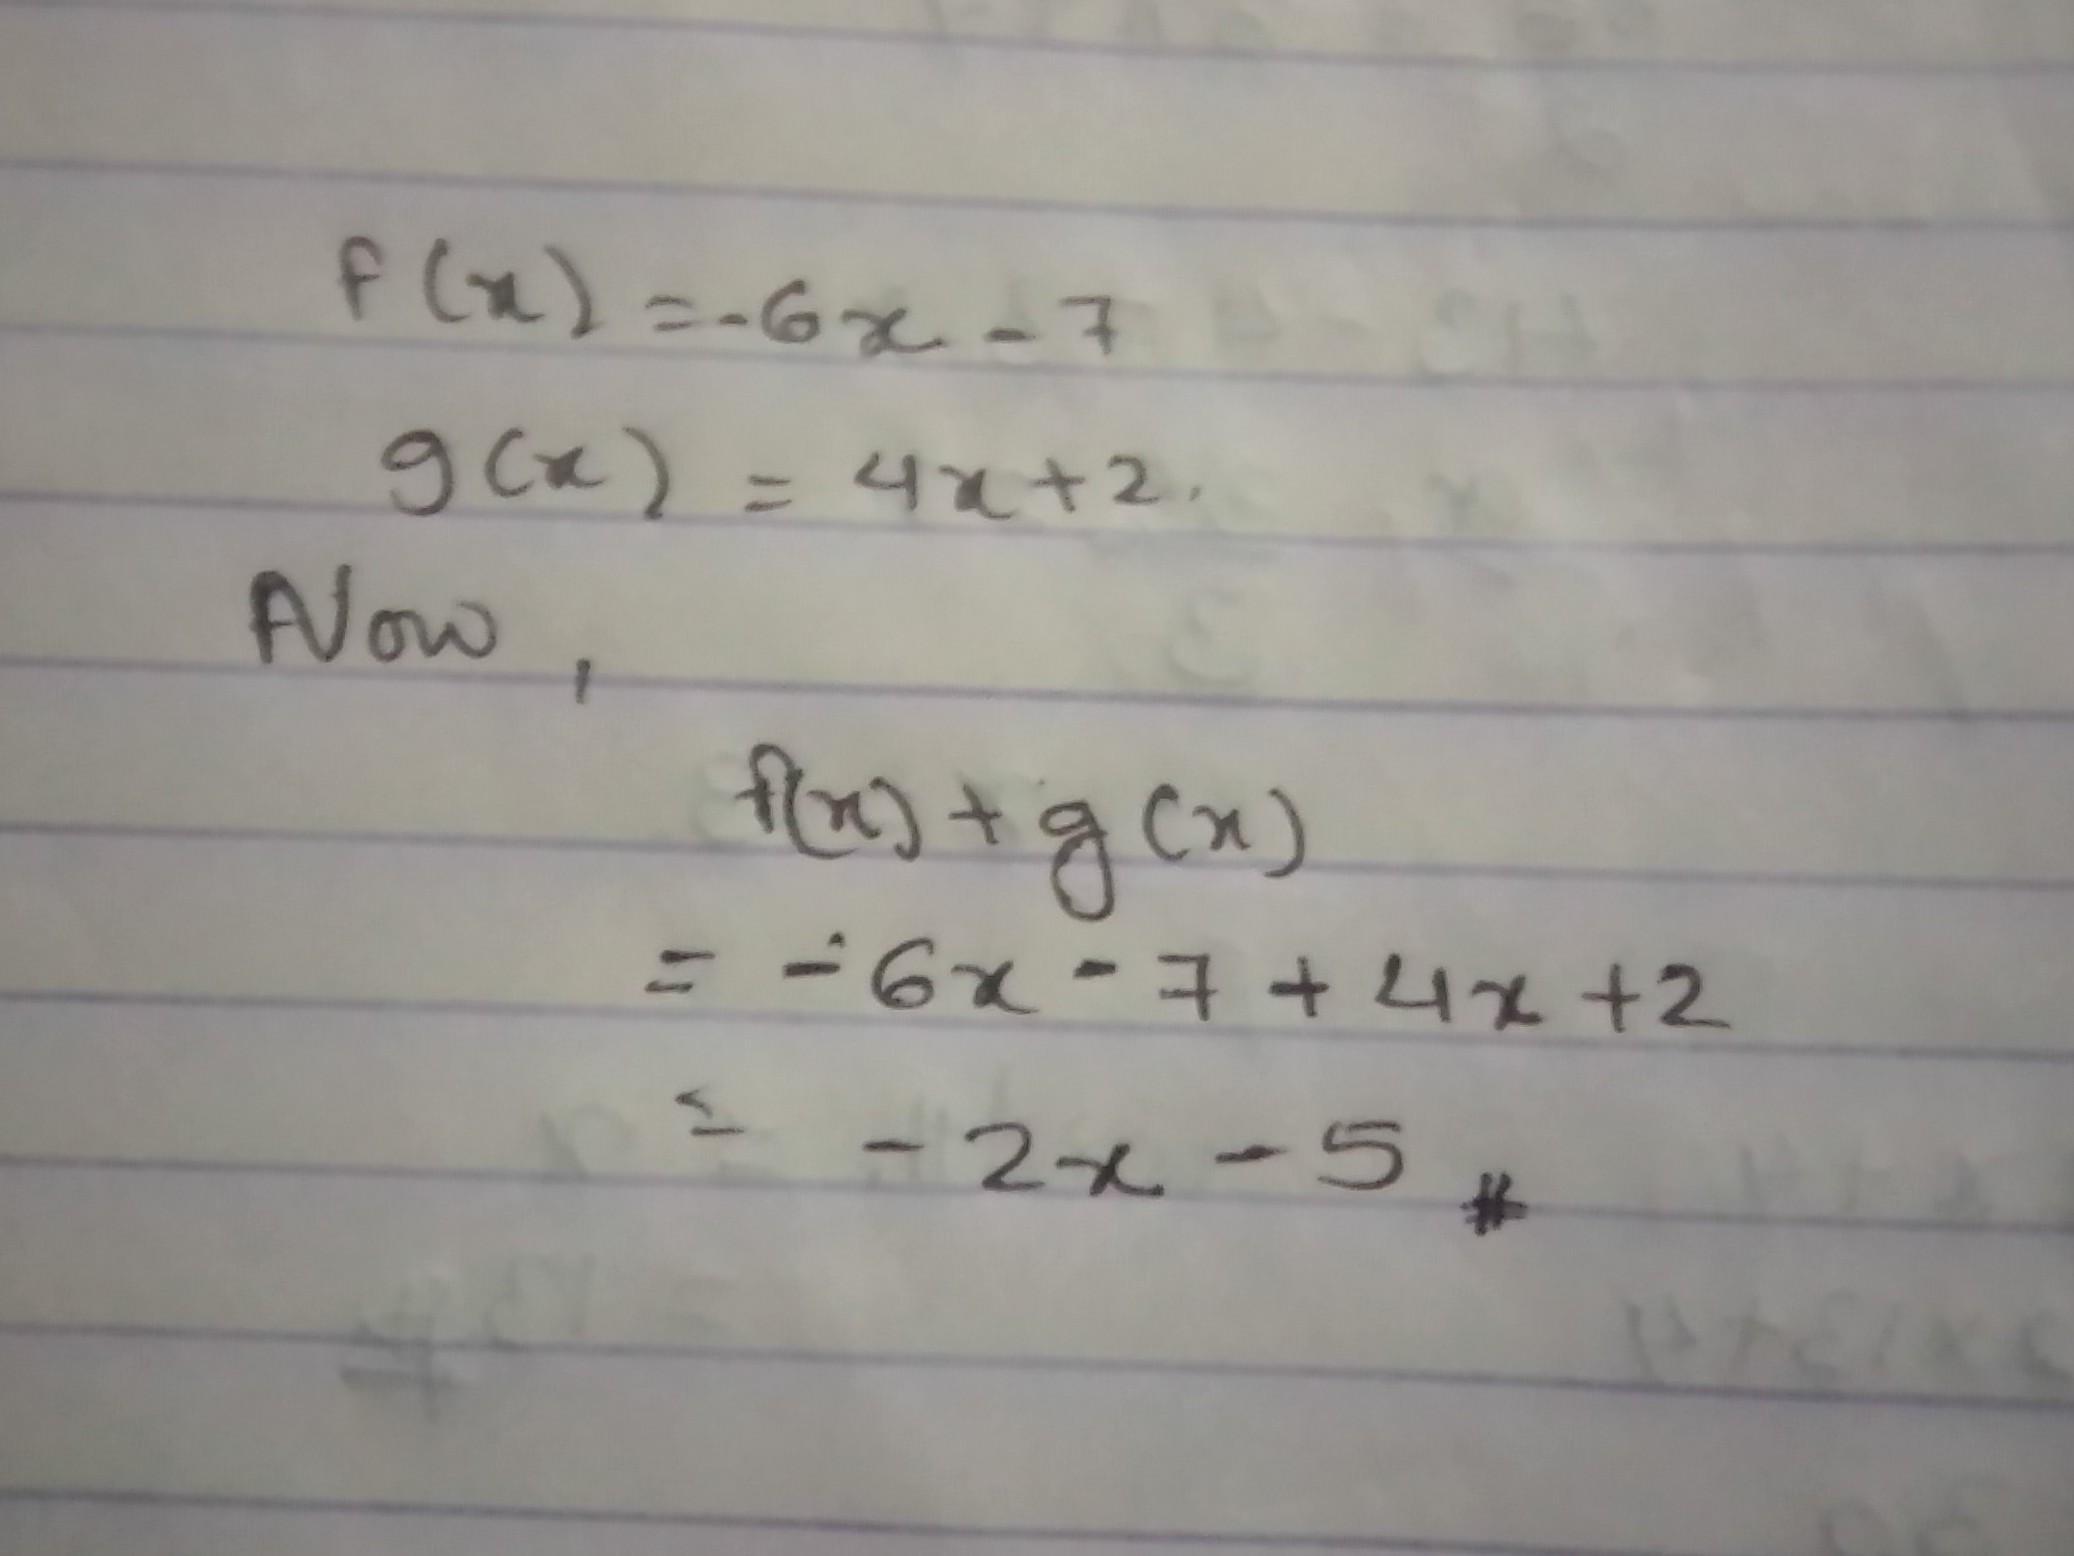 f(x) = -6x - 7
g(x) = 4x + 2.
Now,
f(x) + g(x)
= -6x - 7 + 4x + 2
= -2x - 5 #